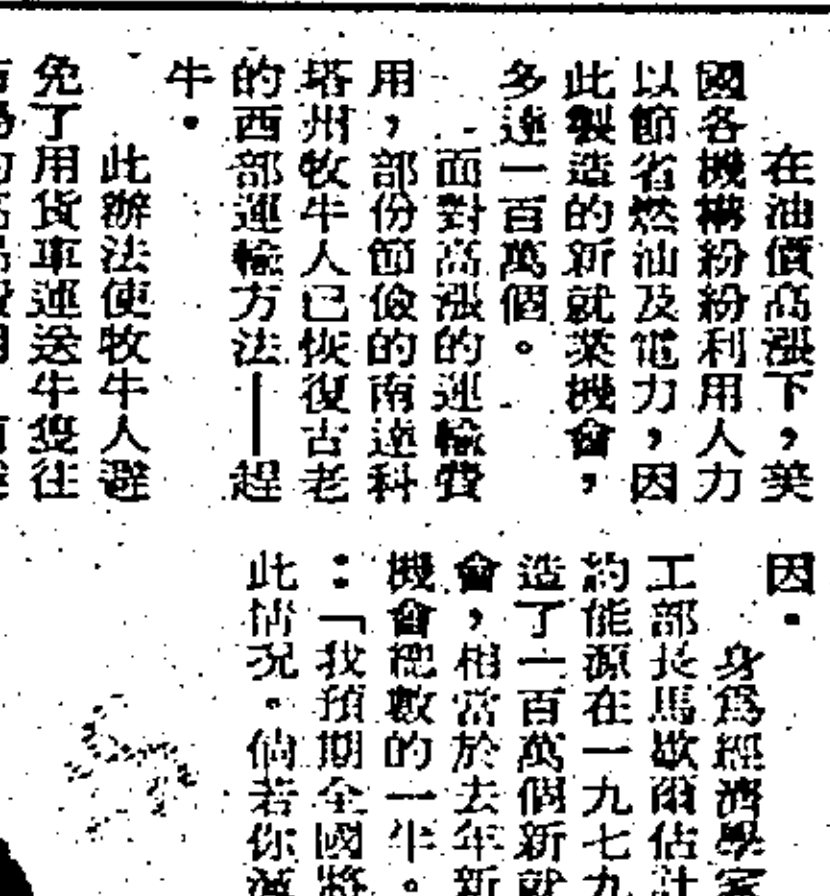 在油價高漲下，美
國各機構紛紛利用人力
以節省燃油及電力，因
此製造的新就業機會，
多達一百萬個。
面對高漲的運輸費
用，部份節儉的南達科
塔州牧牛人已恢復古老
的西部運輸方法——趕
牛。
此辦法使牧牛人避
免了用貨車運送牛隻往
因。
身為經濟學家
工部長馬歇爾估計
約能源在一九七九
造了一百萬個新就
會，相當於去年新
機會總數的一半。
：「我預期全國將
此情況。倘若你減